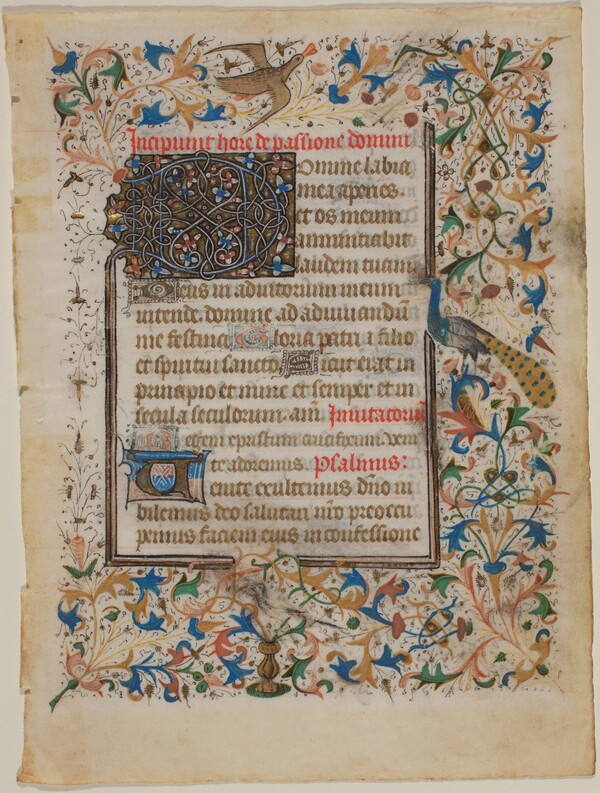 Incipiunt hore de passione domini
Domine labia
mea aperies.
et os meum
annunciabit
laudem tuam
Deus in adiutorium meum
intende. domine ad adiuuandum
me festina Gloria patri i filio
et spiritui sancto Sicut erat in
principio et nunc et semper et in
secula seculorum. am. Inuitatorium
Regem cristum crucifixum. venite
te adoremus. Psalmus:
Uenite exultemus dño iu
bilemus deo salutari nr̃o preoccu
pemus faciem eius in confessione